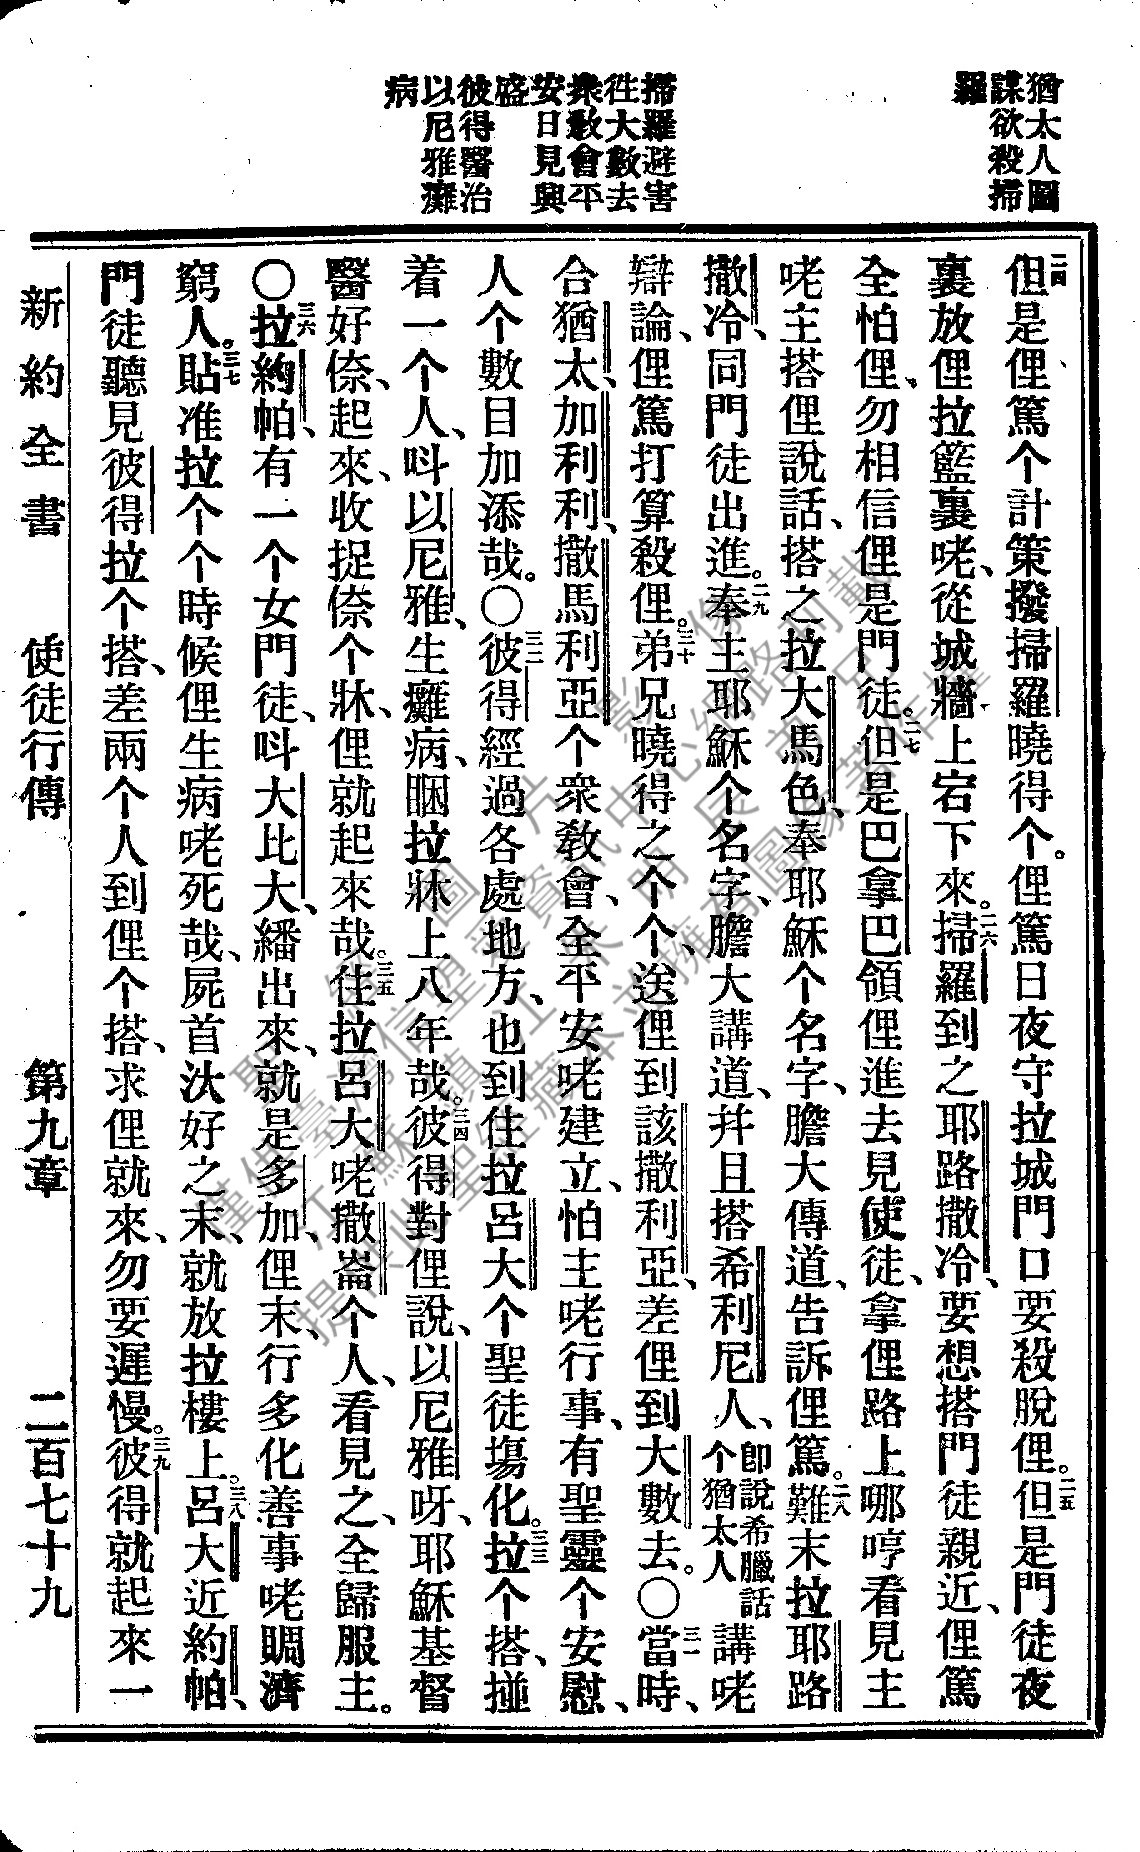 猶太人圖
謀欲殺掃
羅
掃羅避害
徃大數去
衆敎會平
安日見興
盛
彼得醫治
以尼雅癱
病
二四但是俚篤个計策撥掃羅曉得个。俚篤日夜守拉城門口要殺脫俚。二五但是門徒夜
裏放俚拉籃裏咾、從城牆上宕下來。二六掃羅到之耶路撒冷、要想搭門徒親近、俚篤
全怕俚、勿相信俚是門徒。二七但是巴拿巴領俚進去見使徒、拿俚路上哪哼看見主
咾主搭俚說話、搭之拉大馬色、奉耶穌个名字、膽大傳道、告訴俚篤。二八難末拉耶路
撒冷、同門徒出進。二九奉主耶穌个名字、膽大講道、幷且搭希利尼人、卽說希臘話个猶太人講咾
辯論、俚篤打算殺俚。三十弟兄曉得之个个、送俚到該撒利亞、差俚到大數去。〇三一當時、
合猶太、加利利、撒馬利亞个衆敎會、全平安咾建立、怕主咾行事、有聖靈个安慰、
人个數目加添哉。〇三二彼得經過各處地方、也到住拉呂大个聖徒塲化。三三拉个搭、搥
着一个人、呌以尼雅、生癱病、睏拉牀上八年哉。三四彼得對俚說、以尼雅呀、耶穌基督
醫好倷、起來、收捉倷个牀、俚就起來哉。三五住拉呂大咾撒崙个人、看見之、全歸服主。
〇三六拉約帕、有一个女門徒、呌大比大、繙出來、就是多加、俚末、行多化善事咾賙濟
窮人。三七貼准拉个个時候俚生病咾死哉、屍首汏好之末、就放拉樓上。三八呂大近約帕、
門徒聽見彼得拉个搭、差兩个人到俚个搭、求俚就來、勿要遲慢。三九彼得就起來一
新約全書　使徒行傳　第九章　二百七十九